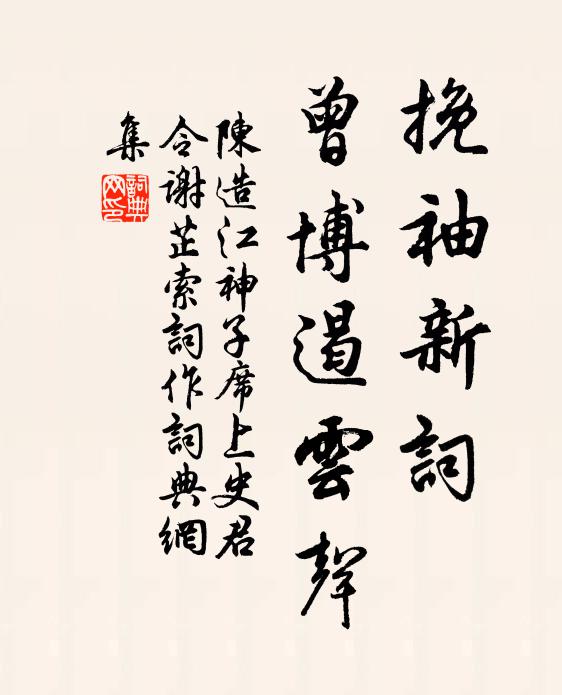 挽袖新詞
曾博遏雲聲
陳造江神子席上史君
令謝芷索詞作詞典網
集
詞典
网印